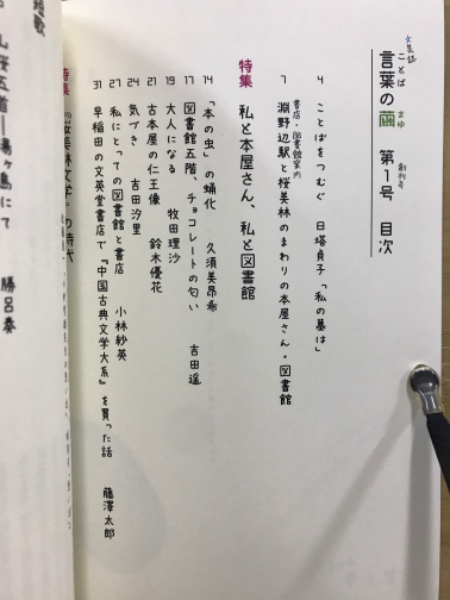 文芸誌
言葉の繭 第1号 目次
ことば
まゆ
創刊号
4 ことばをつむぐ 日塔貞子「私の墓は」
書店・図書館案内
7 淵野辺駅と桜美林のまわりの本屋さん・図書館
特集 私と本屋さん、私と図書館
14 「本の虫」の蛹化 久須美昂希
17 図書館五階、チョコレートの匂い 吉田遥
19 大人になる 牧田理沙
21 古本屋の仁王像 鈴木優花
24 気づき 吉田汐里
27 私にとっての図書館と書店 小林紗英
31 早稲田の文英堂書店で『中国古典文学大系』を買った話 藤澤太郎
特集 桜美林文学 の時代
短歌
山桜五首―湯ヶ島にて 勝呂奏